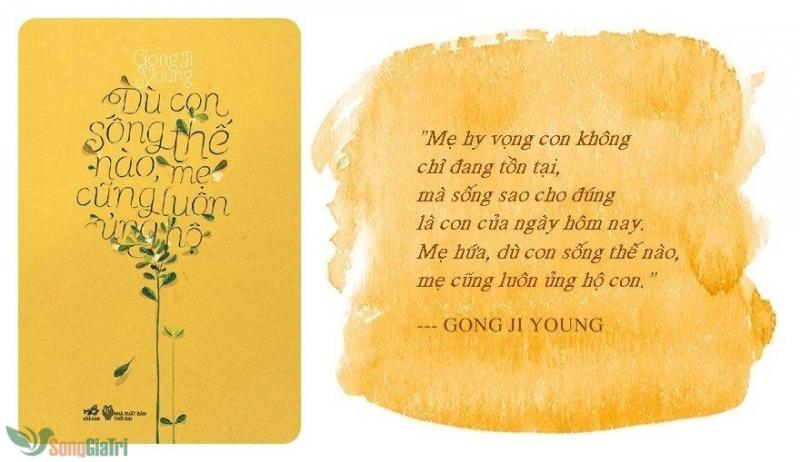 Gong Ji
Young
Dù con
sống thế
nào, mẹ
cũng luôn
ủng hộ
nhã nam
NHÀ XUẤT BẢN
THỜI ĐẠI
SongGiaTri
"Mẹ hy vọng con không
chỉ đang tồn tại,
mà sống sao cho đúng
là con của ngày hôm nay.
Mẹ hứa, dù con sống thế nào,
mẹ cũng luôn ủng hộ con."
--- GONG JI YOUNG